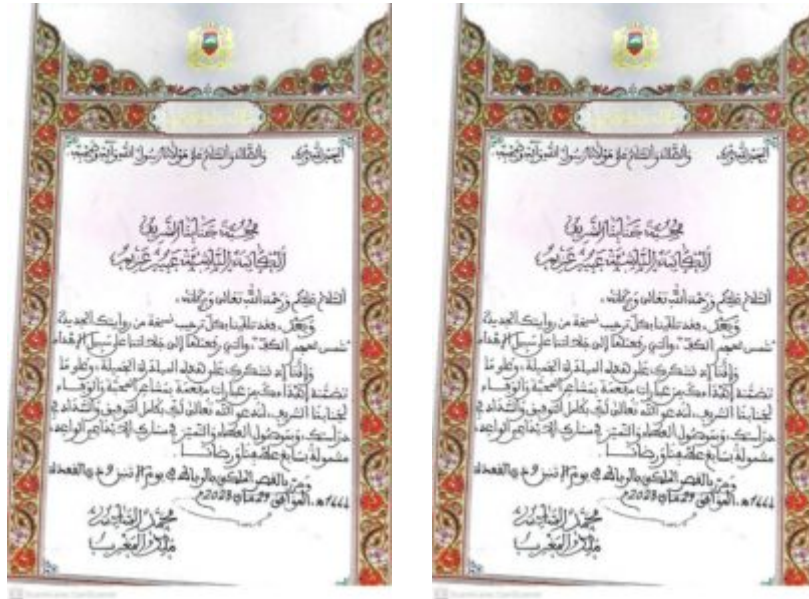 الحمد لله وحده، والصلاة والسلام على مولانا رسول الله وآله وصحبه.
محبة جنابنا الشريف
الكاتبة الناشئة عبير عزيم
السلام عليكم ورحمة الله تعالى وبركاته،
وبعد، فقد تلقينا بكل ترحيب نسخة من روايتك الجديدة
"شمس تحجم الكف"، والتي رفعتها إلى جلالتنا على سبيل الإهداء.
وإننا إذ نشكرك على هذه المبادرة الجميلة، وعلى ما
تضمنه إهداؤك من عبارات مفعمة بمشاعر المحبة والوفاء
لجنابنا الشريف، لندعو الله تعالى لك بكامل التوفيق والسداد في
دراستك، وبموصول العطاء والتميز في مسارك الإبداعي الواعد،
مشمولة بسابغ عطفنا ورضانا.
وحرر بالقصر الملكي بالرباط في يوم الاثنين 9 ذي القعدة
1444هـ، الموافق 29 ماي 2023م
محمد السادس
ملك المغرب
الحمد لله وحده، والصلاة والسلام على مولانا رسول الله وآله وصحبه.
محبة جنابنا الشريف
الكاتبة الناشئة عبير عزيم
السلام عليكم ورحمة الله تعالى وبركاته،
وبعد، فقد تلقينا بكل ترحيب نسخة من روايتك الجديدة
"شمس تحجم الكف"، والتي رفعتها إلى جلالتنا على سبيل الإهداء.
وإننا إذ نشكرك على هذه المبادرة الجميلة، وعلى ما
تضمنه إهداؤك من عبارات مفعمة بمشاعر المحبة والوفاء
لجنابنا الشريف، لندعو الله تعالى لك بكامل التوفيق والسداد في
دراستك، وبموصول العطاء والتميز في مسارك الإبداعي الواعد،
مشمولة بسابغ عطفنا ورضانا.
وحرر بالقصر الملكي بالرباط في يوم الاثنين 9 ذي القعدة
1444هـ، الموافق 29 ماي 2023م
محمد السادس
ملك المغرب